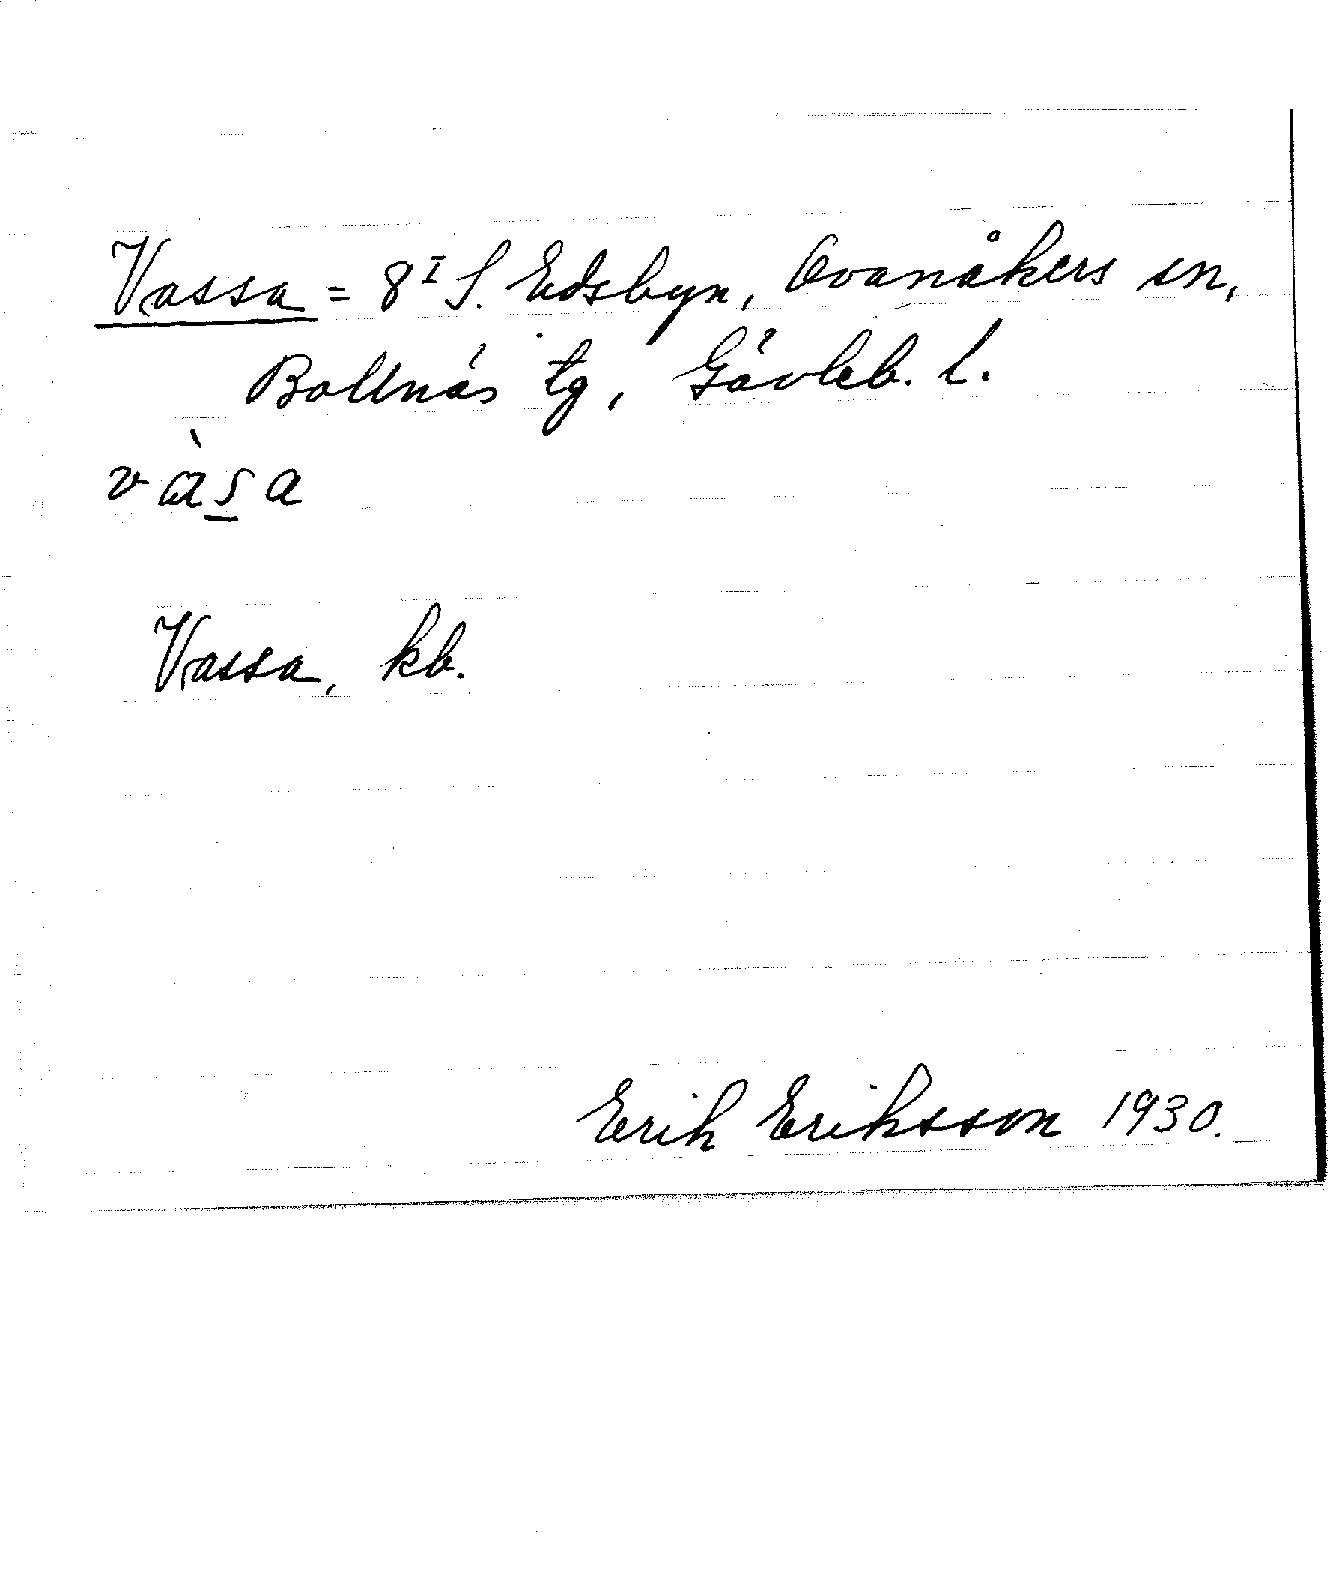 Vassa = 8ᴵ S. Edsbyn, Ovanåkers sn,
Bollnäs tg, Gävleb. l.
vàs̲a
Vassa, kb.
Erik Eriksson 1930.